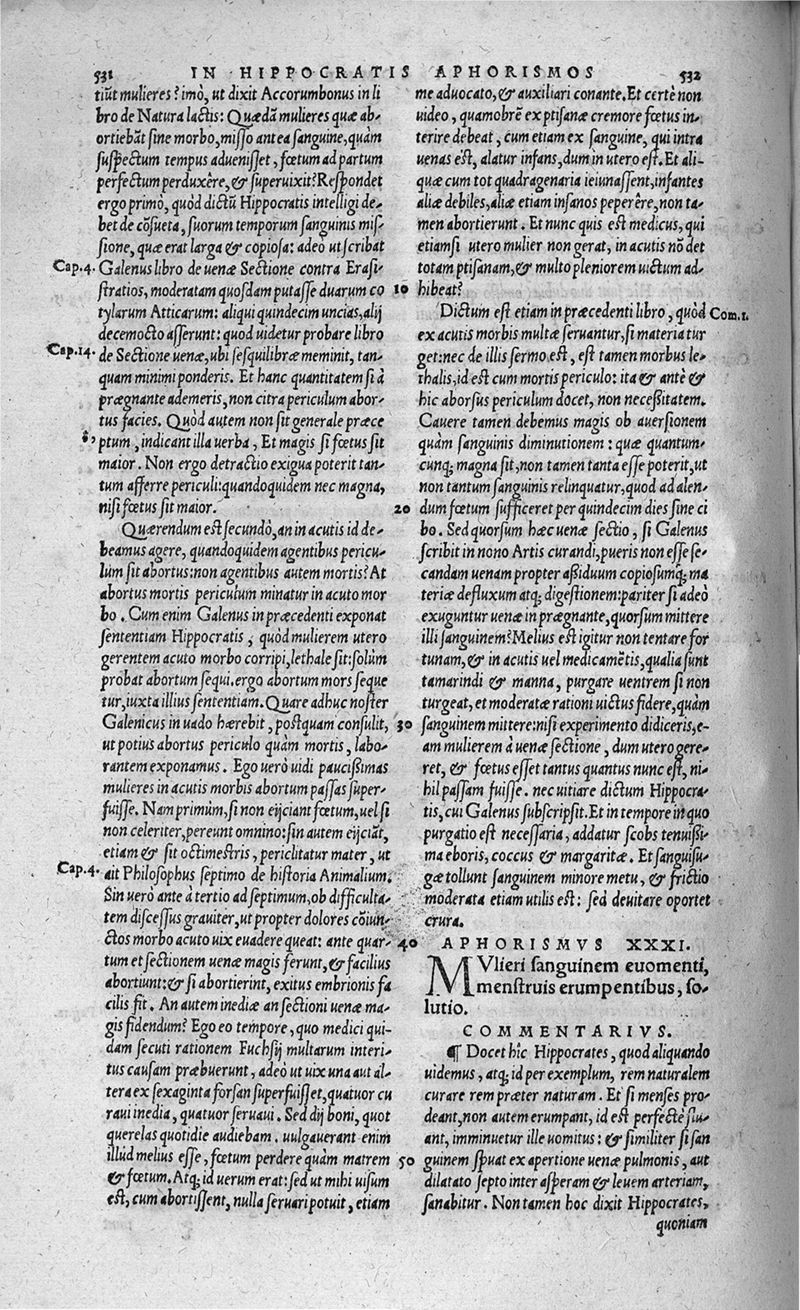 531 IN HIPPOCRATIS APHORISMOS 532
tiũt mulieres? imò, ut dixit Accorumbonus in li
bro de Natura lactis: Quædã mulieres quæ ab-
ortiebãt sine morbo, misso antea sanguine, quàm
suspectum tempus aduenisset, fœtum ad partum
perfectum perduxêre, & superuixit? Respondet
ergo primò, quòd dictũ Hippocratis intelligi de-
bet de cõsueta, suorum temporum sanguinis mis-
sione, quæ erat larga & copiosa: adeò ut scribat
Cap.4. Galenus libro de uenæ Sectione contra Erasi-
stratios, moderatam quosdam putasse duarum co
tylarum Atticarum: aliqui quindecim uncias, alij
decemocto asserunt: quod uidetur probare libro
Cap.14. de Sectione uenæ, ubi sesquilibræ meminit, tan-
quam minimi ponderis. Et hanc quantitatem si à
prægnante ademeris, non citra periculum abor-
tus facies. Quòd autem non sit generale præce
ptum, indicant illa uerba, Et magis si fœtus sit
maior. Non ergo detractio exigua poterit tan-
tum afferre periculi: quandoquidem nec magna,
nisi fœtus sit maior.
Quærendum est secundò, an in acutis id de-
beamus agere, quandoquidem agentibus pericu-
lum sit abortus: non agentibus autem mortis? At
abortus mortis periculum minatur in acuto mor
bo. Cum enim Galenus in præcedenti exponat
sententiam Hippocratis, quòd mulierem utero
gerentem acuto morbo corripi, lethale sit: solùm
probat abortum sequi. ergo abortum mors seque
tur, iuxta illius sententiam. Quare adhuc noster
Galenicus in uado hærebit, postquam consulit,
ut potius abortus periculo quàm mortis, labo-
rantem exponamus. Ego uerò uidi paucissimas
mulieres in acutis morbis abortum passas super-
fuisse. Nam primùm, si non eijciant fœtum, uel si
non celeriter, pereunt omnino: sin autem eijciãt,
etiam & sit octimestris, periclitatur mater, ut
Cap.4. ait Philosophus septimo de historia Animalium.
Sin uerò ante à tertio ad septimum, ob difficulta-
tem discessus grauiter, ut propter dolores cõiun-
ctos morbo acuto uix euadere queat: ante quar-
tum et sectionem uenæ magis ferunt, & facilius
abortiunt: & si abortierint, exitus embrionis fa
cilis fit. An autem inediæ an sectioni uenæ ma-
gis fidendum? Ego eo tempore, quo medici qui-
dam secuti rationem Fuchsij multarum interi-
tus causam præbuerunt, adeò ut uix una aut al-
tera ex sexaginta forsan superfuisset, quatuor cu
raui inedia, quatuor seruaui. Sed dij boni, quot
querelas quotidie audiebam. uulgauerant enim
illud melius esse, fœtum perdere quàm matrem
& fœtum. Atq; id uerum erat: sed ut mihi uisum
est, cum abortissent, nulla seruari potuit, etiam
me aduocato, & auxiliari conante. Et certè non
uideo, quamobrẽ ex ptisanæ cremore fœtus in-
terire debeat, cum etiam ex sanguine, qui intra
uenas est, alatur infans, dum in utero est. Et ali-
quæ cum tot quadragenaria ieiunassent, infantes
aliæ debiles, aliæ etiam insanos peperêre, non ta-
men abortierunt. Et nunc quis est medicus, qui
etiamsi utero mulier non gerat, in acutis nõ det
totam ptisanam, & multo pleniorem uictum ad-
10 hibeat?
Dictum est etiam in præcedenti libro, quòd Com.1.
ex acutis morbis multæ seruantur, si materia tur
get: nec de illis sermo est, est tamen morbus le-
thalis, id est cum mortis periculo: ita & antè &
hic aborsus periculum docet, non necessitatem.
Cauere tamen debemus magis ob auersionem
quàm sanguinis diminutionem: quæ quantum-
cunq; magna sit, non tamen tanta esse poterit, ut
non tantum sanguinis relinquatur, quod ad alen-
20 dum fœtum sufficeret per quindecim dies sine ci
bo. Sed quorsum hæc uenæ sectio, si Galenus
scribit in nono Artis curandi, pueris non esse se-
candam uenam propter assiduum copiosumq; ma
teriæ defluxum atq; digestionem: pariter si adeò
exuguntur uenæ in prægnante, quorsum mittere
illi sanguinem? Melius est igitur non tentare for
tunam, & in acutis uel medicamẽtis, qualia sunt
tamarindi & manna, purgare uentrem si non
turgeat, et moderatæ rationi uictus fidere, quàm
30 sanguinem mittere: nisi experimento didiceris, e-
am mulierem à uenæ sectione, dum utero gere-
ret, & fœtus esset tantus quantus nunc est, ni-
hil passam fuisse. nec uitiare dictum Hippocra-
tis, cui Galenus subscripsit. Et in tempore in quo
purgatio est necessaria, addatur scobs tenuissi-
ma eboris, coccus & margaritæ. Et sanguisu-
gæ tollunt sanguinem minore metu, & frictio
moderata etiam utilis est: sed deuitare oportet
crura.
40 APHORISMVS XXXI.
MVlieri sanguinem euomenti,
menstruis erumpentibus, so-
lutio.
COMMENTARIVS.
¶ Docet hîc Hippocrates, quod aliquando
uidemus, atq; id per exemplum, rem naturalem
curare rem præter naturam. Et si menses pro-
deant, non autem erumpant, id est perfectè flu-
ant, imminuetur ille uomitus: & similiter si san
50 guinem spuat ex apertione uenæ pulmonis, aut
dilatato septo inter asperam & leuem arteriam,
sanabitur. Non tamen hoc dixit Hippocrates,
quoniam